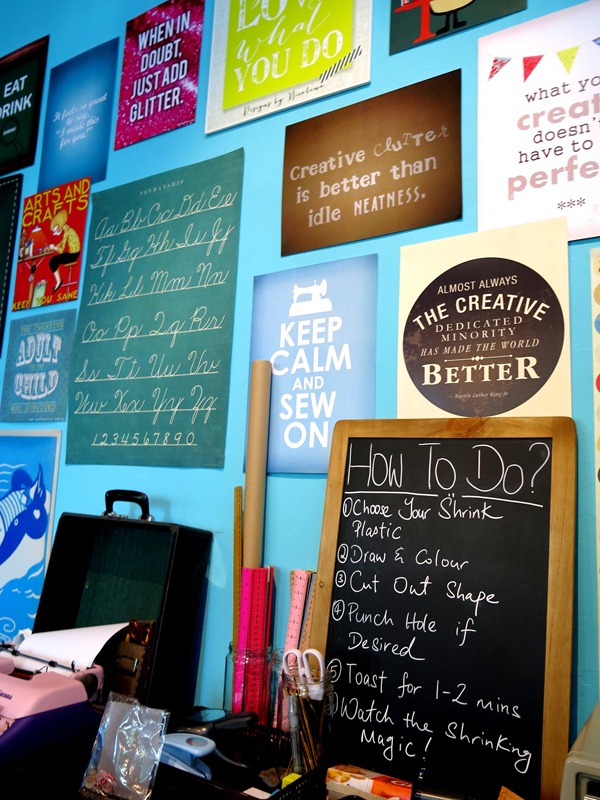 EAT
DRINK
It feels so great
to say
"I made this
for you."
WHEN IN
DOUBT,
JUST ADD
GLITTER.
LOVE
What
YOU DO
Designs by
Creative CluTTeR
is better than
idle NEATNESS.
what yo
creat
doesn't
have to
perfe
***
ARTS AND
CRAFTS
KEEP YOU SANE
PENMANSHIP
Aa Bb Cc Dd Ee
Ff Gg Hh Ii Jj
Kk Ll Mm Nn
Oo Pp Qq Rr
Ss Tt Uu Vv
Ww Xx Yy Zz
1 2 3 4 5 6 7 8 9 0
THE CREATIVE
ADULT
CHILD
KEEP
CALM
AND
SEW
ON
ALMOST ALWAYS
THE CREATIVE
DEDICATED
MINORITY
HAS MADE THE WORLD
BETTER
- Martin Luther King Jr
HOW TO DO?
① Choose Your Shrink
Plastic
② Draw & Colour
③ Cut Out Shape
④ Punch Hole if
Desired
⑤ Toast for 1-2 mins
Watch the Shrinking
Magic!